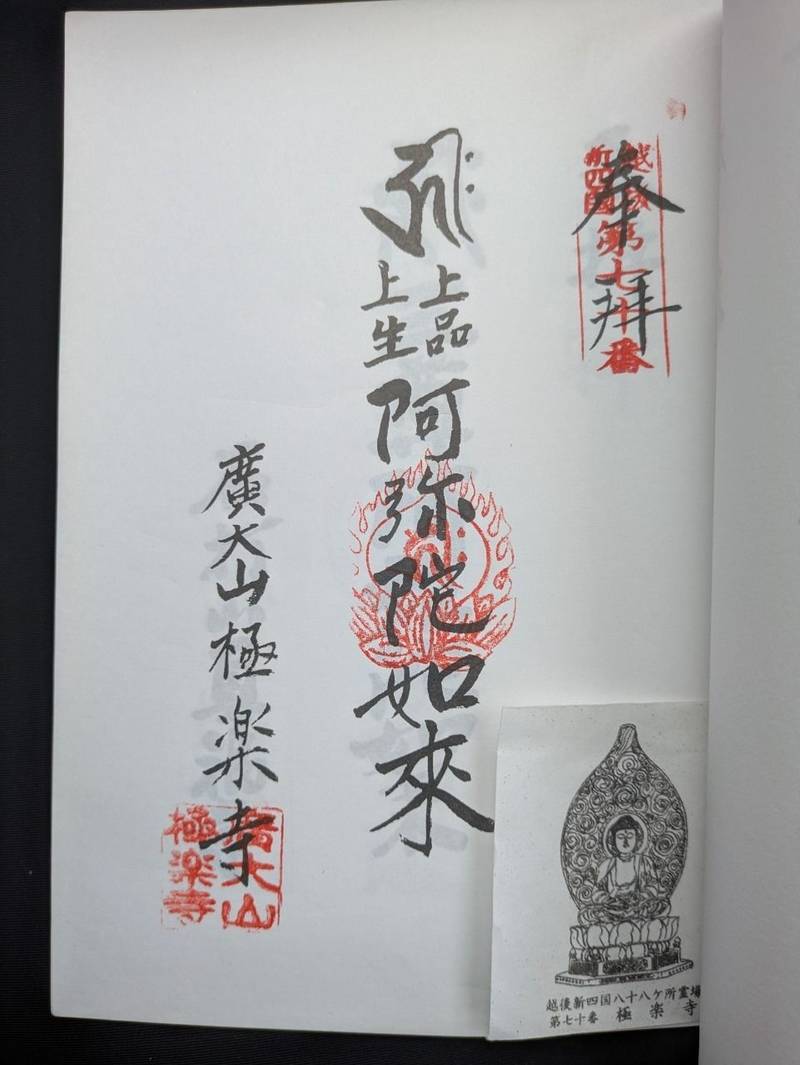 奉拝
越後
新四国
第七十番
上品
上生
阿弥陀如來
廣大山極楽寺
廣大山
極楽寺
越後新四国八十八ケ所霊場
第七十番 極楽寺